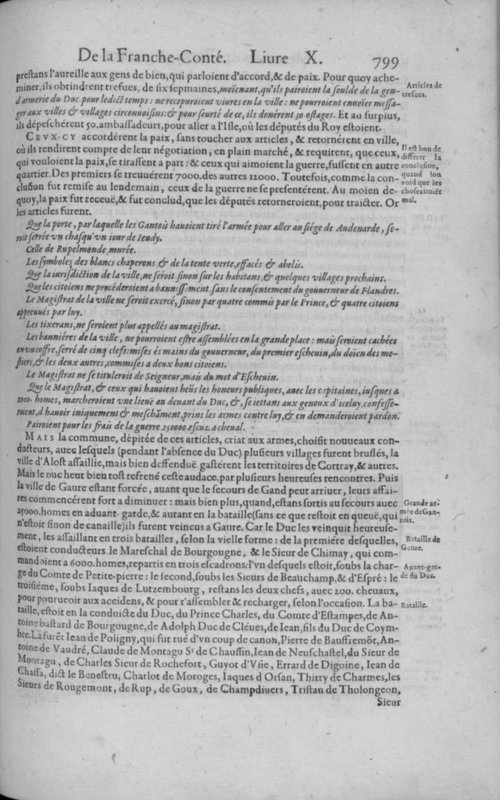 De la Franche-Conté. Liure X. 799
prestans l'aureille aux gens de bien, qui parloient d'accord, & de paix. Pour quoy ache-
miner, ils obtindrent tresues, de six sepmaines, moïenant, qu'ils pairoient la soulde de la gen-
d'armerie du Duc pour ledict temps: ne receuroient viures en la ville: ne pourroient enuoïer messa-
ger aux villes & villages circonuoisins: & pour seurté de ce, ils donérent 30. ostages. Et au surplus,
ils dépeschérent 50. ambassadeurs, pour aller a l'Isle, où les députés du Roy estoient.
Articles de
tresues.
CEVX-CY accordérent la paix, sans toucher aux articles, & retornérent en ville,
où ils rendirent compte de leur négotiation, en plain marché, & requirent, que ceux,
qui vouloient la paix, se tirassent a part: & ceux qui aimoient la guerre, fussent en autre
quartier. Des premiers se treuuérent 7000. des autres 12000. Toutefois, comme la con-
clusion fut remise au lendemain, ceux de la guerre ne se presentérent. Au moïen de-
quoy, la paix fut receuë, & fut conclud, que les députés retorneroient, pour traicter. Or
les articles furent.
Il est bon de
differer la
conclusion,
quand lon
void que les
choses irōt
mal.
Que la porte, par laquelle les Gantois hauoient tiré l'armée pour aller au siége de Audenarde, se-
roit serrée vn chasqu'vn iour de Iendy.
Celle de Rupelmonde, murée.
Les symboles des blancs chaperons, & de la tente verte, effacés & abolis.
Que la iurisdiction de la ville, ne seroit sinon sur les habitans, & quelques villages prochains.
Que les citiens ne procéderoient a bannissement, sans le consentement du gouuerneur de Flandres.
Le Magistrat de la ville ne seroit exercé, sinon par quatre commis par le Prince, & quatre citoiens
appreuués par luy.
Les tixerans, ne seroient plus appellés au magistrat.
Les bannières de la ville, ne pourroient estre assemblées en la grande place: mais seroient cachées
en vn coffre, serré de cinq clefs: mises és mains du gouuerneur, du premier escheuin, du doien des me-
stiers, & les deux autres, commises a deux bons citoiens.
Le Magistrat ne se tituleroit de Seigneur, mais du mot d'Escheuin.
Que le Magistrat, & ceux qui hauoient heüs les honeurs publiques, auec les capitaines, iusques a
2000. homes, marcheroient vne lieuë au deuant du Duc, &, se iettans aux genoux d'iceluy, confesse-
roient, d'hauoir iniquement & meschāment, prins les armes contre luy, & en demanderoient pardon.
Pairoient pour les frais de la guerre 250000. escuz a cheual.
MAIS la commune, dépitée de ces articles, criat aux armes, choisit nouueaux con-
ducteurs, auec lesquels (pendant l'absence du Duc) plusieurs villages furent bruslés, la
ville d'Alost assaillie, mais bien deffenduë gastérent les territoires de Cortray, & autres.
Mais le duc heut bien tost refrené ceste audace, par plusieurs heureuses rencontres. Puis
la ville de Gaure estant forcée, auant que le secours de Gand peut arriuer, leurs affai-
res commencérent fort a diminuer: mais bien plus, quand, estans sortis au secours auec
25000. homes en aduant-garde, & autant en la bataille (sans ce que restoit en queuë, qui
n'estoit sinon de canaille) ils furent veincus a Gaure. Car le Duc les veinquit heureuse-
ment, les assaillant en trois batailles, selon la vielle forme: de la premiére desquelles,
estoient conducteurs le Mareschal de Bourgougne, & le Sieur de Chimay, qui com-
mandoient a 6000. homes, repartis en trois escadrons: l'vn desquels estoit, soubs la char-
ge du Comte de Petite-pierre: le second, soubs les Sieurs de Beauchamp, & d'Espré: le
troisiéme, soubs Iaques de Lutzembourg, restans les deux chefs, auec 200. cheuaux,
pour pourueoir aux accidens, & pour r'assembler & recharger, selon l'occasion. La ba-
taille, estoit en la conduicte du Duc, du Prince Charles, du Comte d'Estampes, de An-
toine bastard de Bourgougne, de Adolph Duc de Cléues, de Iean, fils du Duc de Coym-
bre. Là furēt Iean de Poligny, qui fut tué d'vn coup de canon, Pierre de Bauffremōt, An-
toine de Vaudré, Claude de Montagu Sr de Chaussin, Iean de Neufchastel, du Sieur de
Montagu, de Charles Sieur de Rochefort, Guyot d'Vsie, Errard de Digoine, Iean de
Chassa, dict le Benestru, Charlot de Moroges, Iaques d'Orsan, Thirry de Charmes, les
Sieurs de Rougemont, de Rup, de Goux, de Champdiuers, Tristan de Tholongeon,
Grande ar-
mée de Gan-
tois.
Bataille de
Gaure.
Auant-gar-
de du Duc.
Bataille.
Sieur